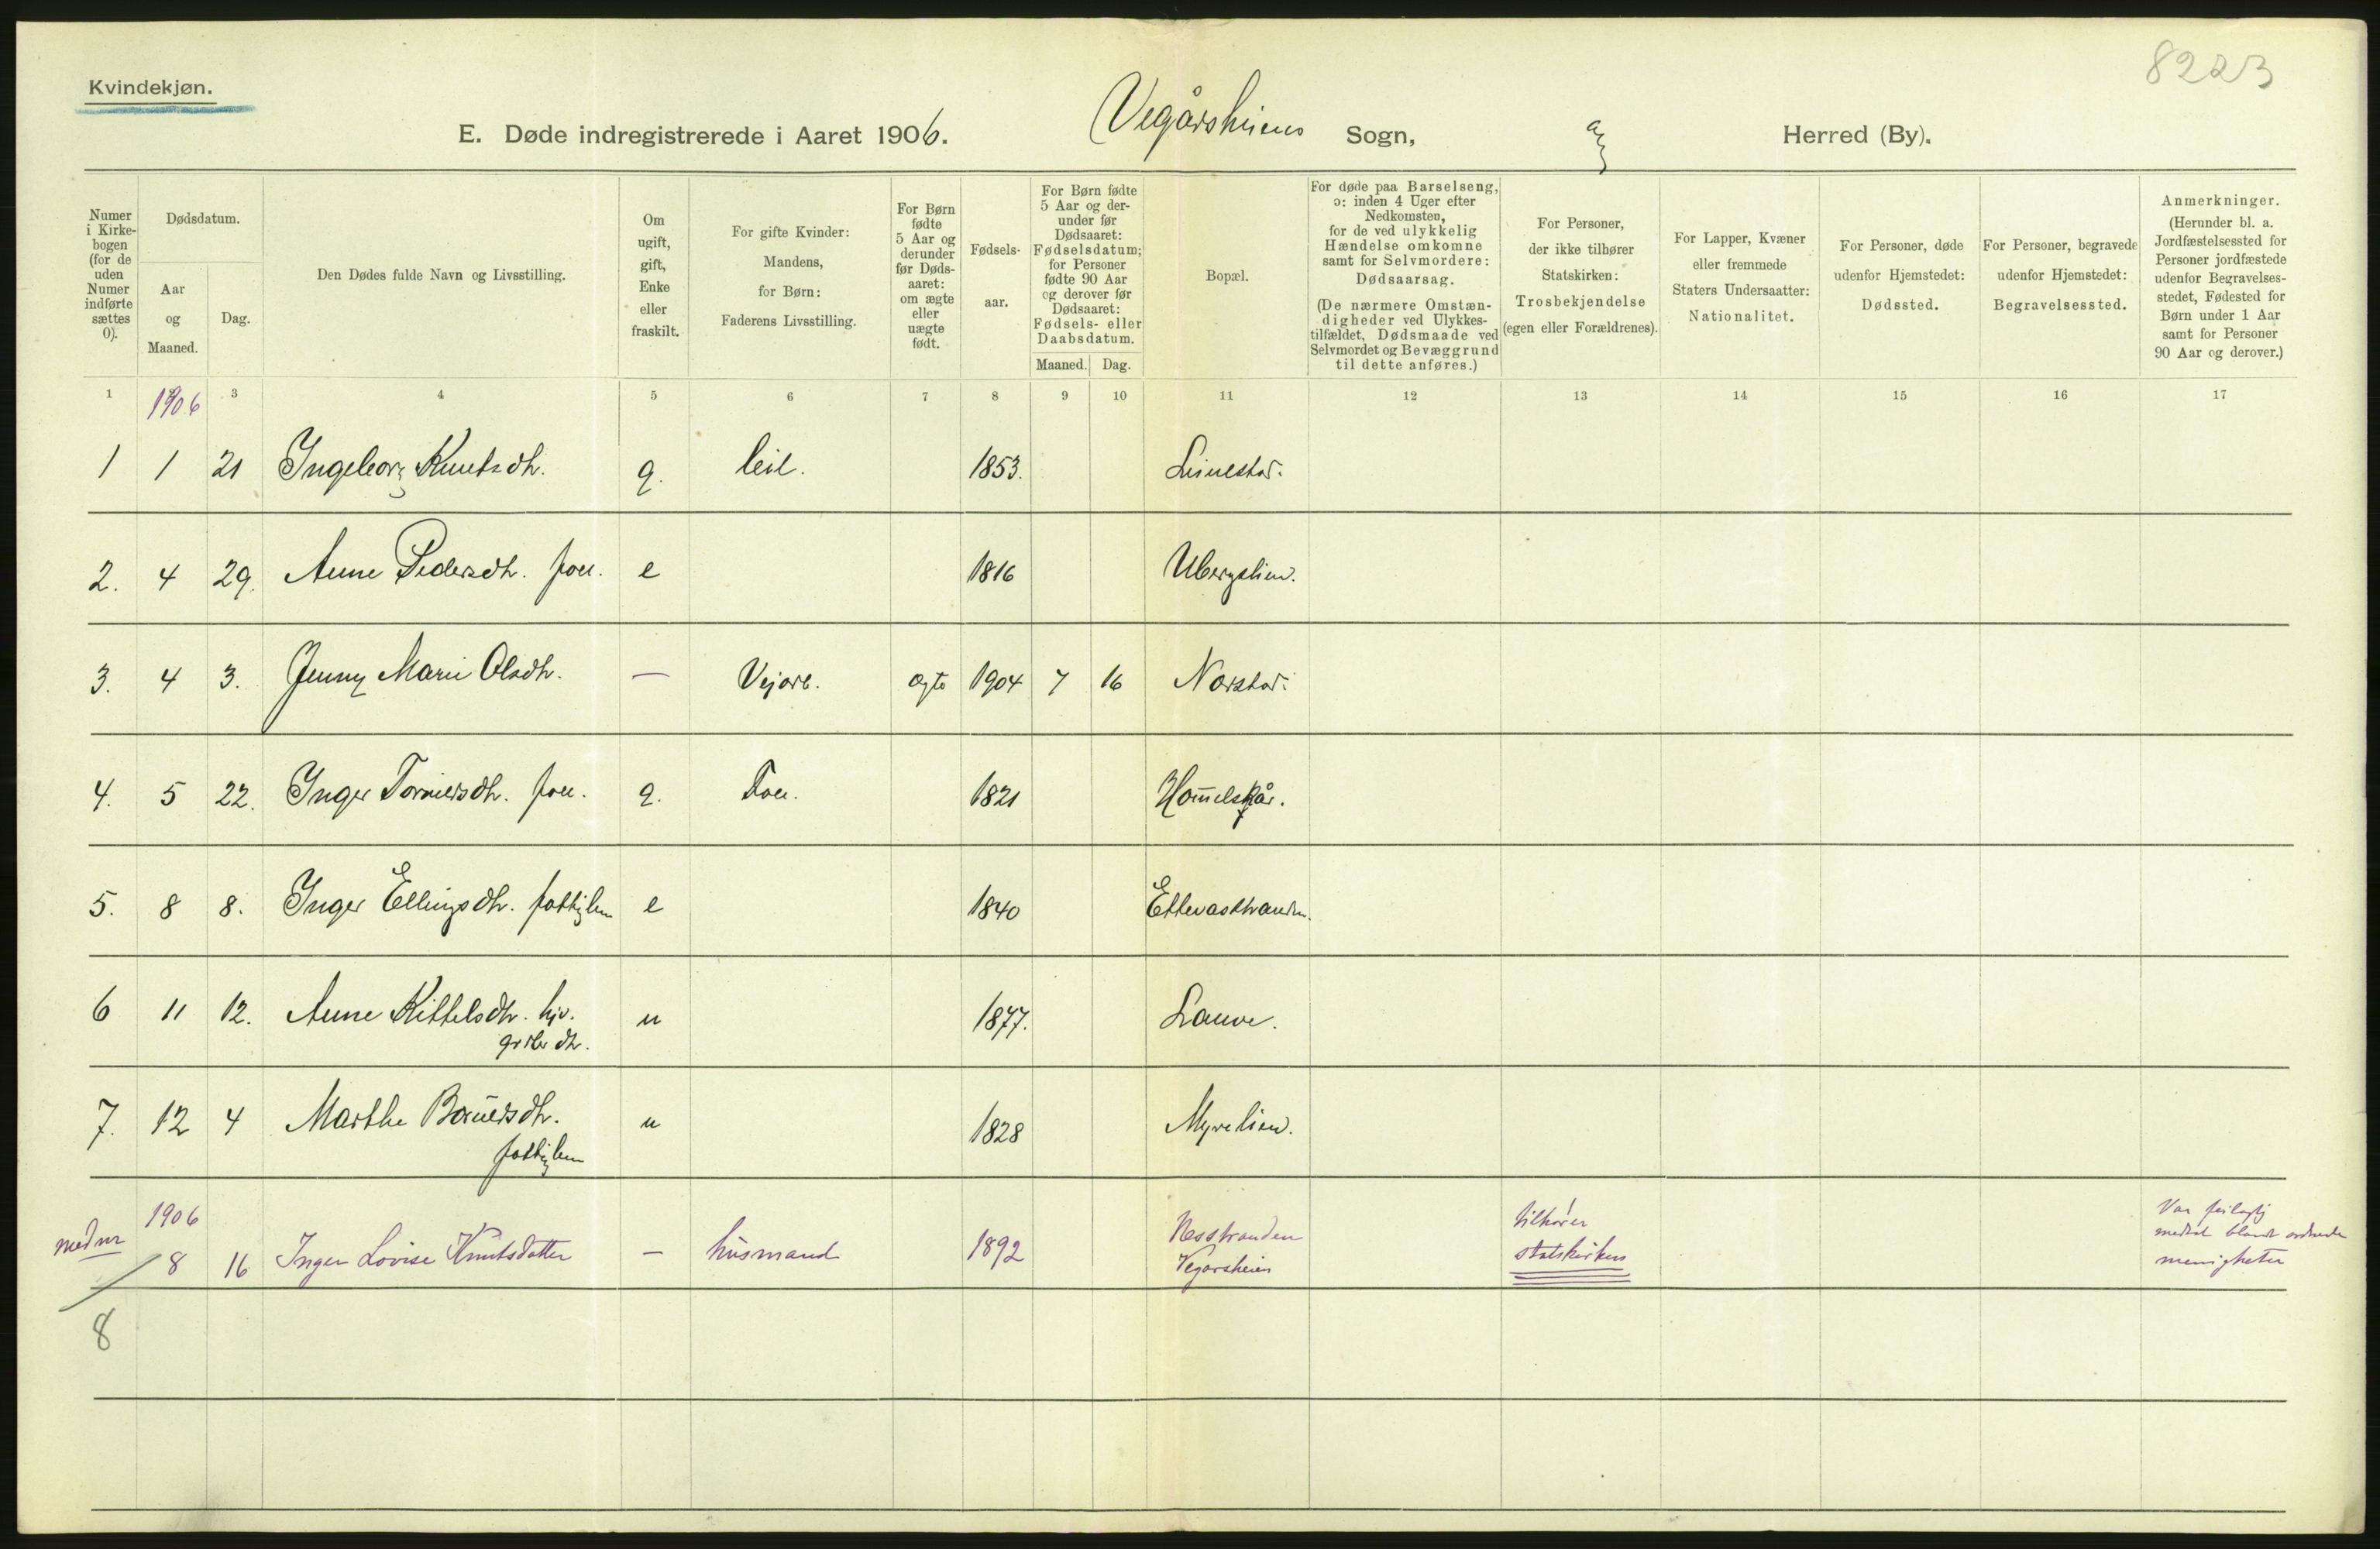 8223
Kvindekjøn.
E. Døde indregistrerede i Aaret 1906. Vegårsheiens Sogn, Herred (By).
Numer i Kirkebogen (for de uden Numer indførte sættes 0).
Dødsdatum.
Aar og Maaned.
Dag.
Den Dødes fulde Navn og Livsstilling.
Om ugift, gift, Enke eller fraskilt.
For gifte Kvinder: Mandens, for Børn: Faderens Livsstilling.
For Børn fødte 5 Aar og derunder før Dødsaaret: om ægte eller uægte født.
Fødselsaar.
For Børn fødte 5 Aar og derunder før Dødsaaret: Fødselsdatum; for Personer fødte 90 Aar og derover før Dødsaaret: Fødsels- eller Daabsdatum.
Maaned. Dag.
Bopæl.
For døde paa Barselseng, ɔ: inden 4 Uger efter Nedkomsten, for de ved ulykkelig Hændelse omkomne samt for Selvmordere: Dødsaarsag.
(De nærmere Omstændigheder ved Ulykkestilfældet, Dødsmaade ved Selvmordet og Bevæggrund til dette anføres.)
For Personer, der ikke tilhører Statskirken: Trosbekjendelse (egen eller Forældrenes).
For Lapper, Kvæner eller fremmede Staters Undersaatter: Nationalitet.
For Personer, døde udenfor Hjemstedet: Dødssted.
For Personer, begravede udenfor Hjemstedet: Begravelsessted.
Anmerkninger.
(Herunder bl. a. Jordfæstelsessted for Personer jordfæstede udenfor Begravelsesstedet, Fødested for Børn under 1 Aar samt for Personer 90 Aar og derover.)
1 3 4 5 6 7 8 9 10 11 12 13 14 15 16 17
1906
1 1 21 Ingeborg Knutsdtr. g. leil. 1853.
2. 4 29. Anne Pedersdtr. fou. e 1816 Ubergslien.
3. 4 3. Jenny Marie Olsdtr. — Vejarb. ægte 1904 7 16 Norstad.
4. 5 22. Inger dtr. fou. g. Fou. 1821
5. 8 8. Inger Ellingsdtr. fattiglem e 1840
6 11 12. Anne Kittelsdtr. hjv. u 1877. Lauve.
grbr dtr.
7. 12 4 Marthe dtr. u 1828 Myrelien.
fattiglem
1906
med nr
8 16 Inger Lovise Knutsdatter — husmand 1892 Nesstranden
Vegarsheien
tilhører
statskirken
Var feilagtig
medtat blandt
menigheter
8